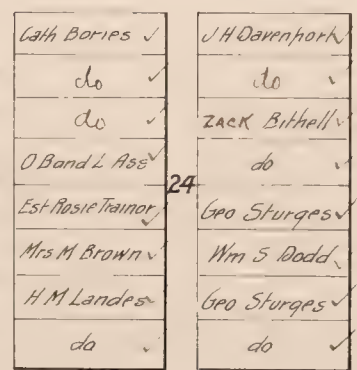 Cath Bories ✓
do ✓
do ✓
O Band L Ass ✓
Est Rosie Trainor ✓
Mrs M Brown ✓
H M Landes ✓
do ✓
24
J H Davenport ✓
do ✓
ZACK Bithell ✓
do ✓
Geo Sturges ✓
Wm S Dodd ✓
Geo Sturges ✓
do ✓